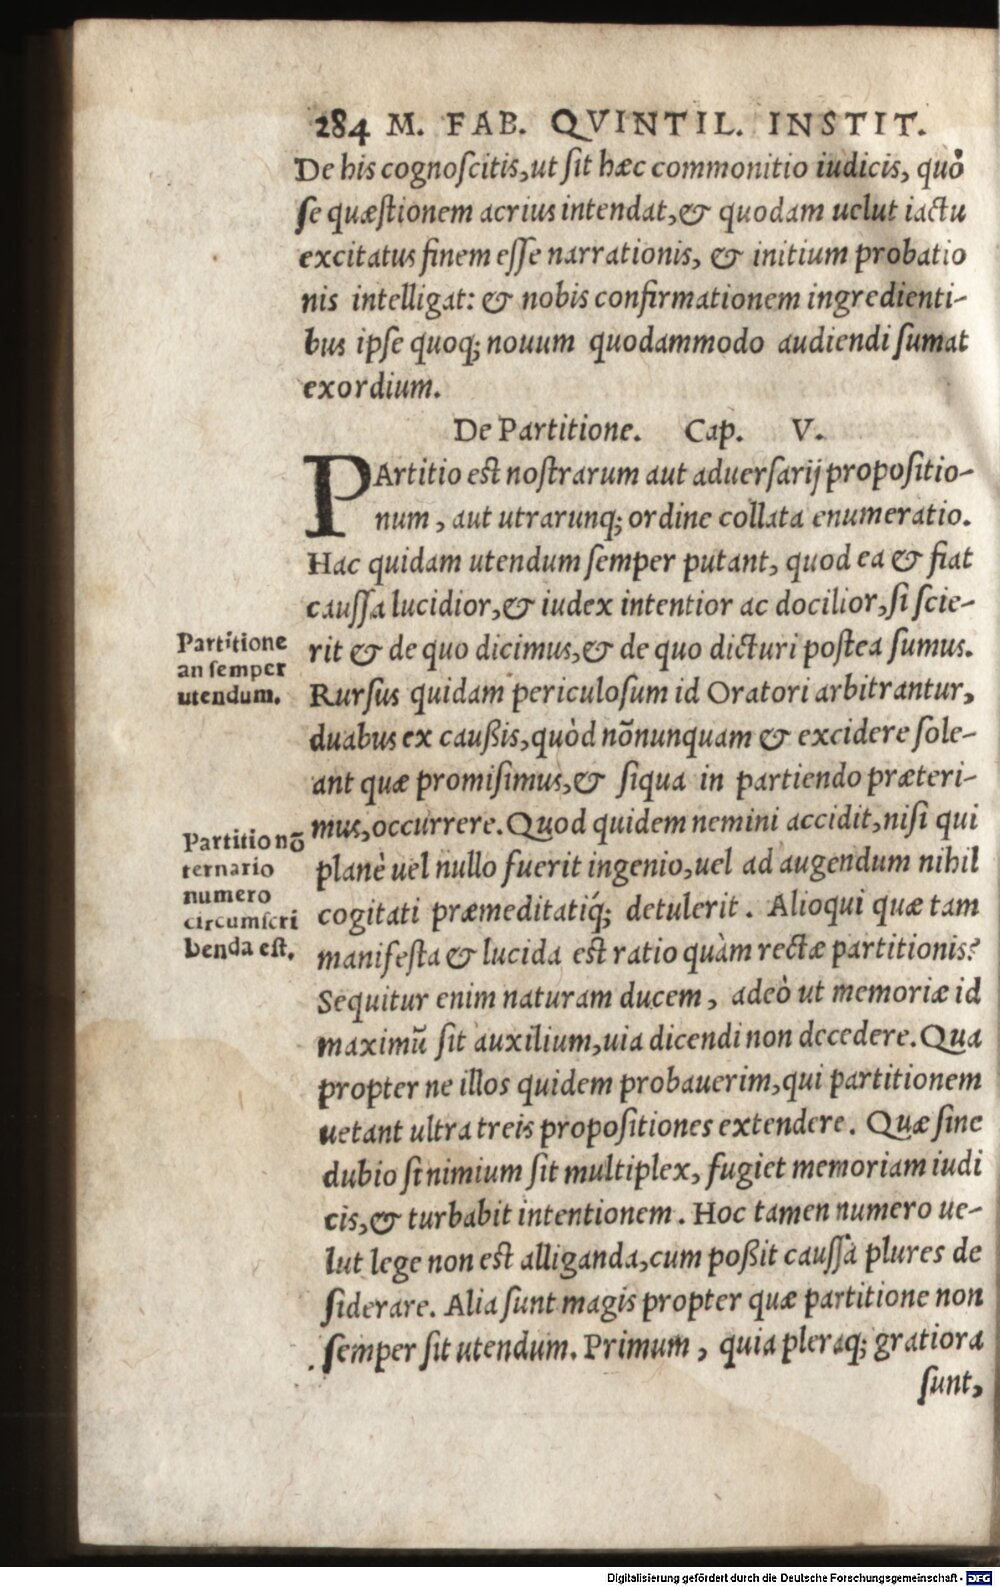 284 M. FAB. QVINTIL. INSTIT.
De his cognoſcitis,ut ſit hæc commonitio iudicis, quò
ſe quæſtionem acrius intendat,& quodam uelut iactu
excitatus finem eſſe narrationis, & initium probatio
nis intelligat: & nobis confirmationem ingredienti-
bus ipſe quoq; nouum quodammodo audiendi ſumat
exordium.
De Partitione. Cap. V.
PArtitio eſt noſtrarum aut aduerſarij propoſitio-
num, aut utrarunq; ordine collata enumeratio.
Hac quidam utendum ſemper putant, quod ea & fiat
cauſſa lucidior,& iudex intentior ac docilior,ſi ſcie-
rit & de quo dicimus,& de quo dicturi poſtea ſumus.
Rurſus quidam periculoſum id Oratori arbitrantur,
duabus ex cauſsis,quòd nõnunquam & excidere ſole-
ant quæ promiſimus,& ſiqua in partiendo præteri-
mus,occurrere. Quod quidem nemini accidit,niſi qui
planè uel nullo fuerit ingenio,uel ad augendum nihil
cogitati præmeditatiq́; detulerit. Alioqui quæ tam
manifeſta & lucida eſt ratio quàm rectæ partitionis?
Sequitur enim naturam ducem, adeò ut memoriæ id
maximũ ſit auxilium,uia dicendi non decedere. Qua
propter ne illos quidem probauerim,qui partitionem
uetant ultra treis propoſitiones extendere. Quæ ſine
dubio ſi nimium ſit multiplex, fugiet memoriam iudi
cis,& turbabit intentionem. Hoc tamen numero ue-
lut lege non eſt alliganda,cum poſsit cauſſa plures de
ſiderare. Alia ſunt magis propter quæ partitione non
ſemper ſit utendum. Primum, quia pleraq; gratiora
ſunt,
Partitione
an ſemper
utendum.
Partitio nõ
ternario
numero
circumſcri
benda eſt.
Digitalisierung gefördert durch die Deutsche Forschungsgemeinschaft - DFG